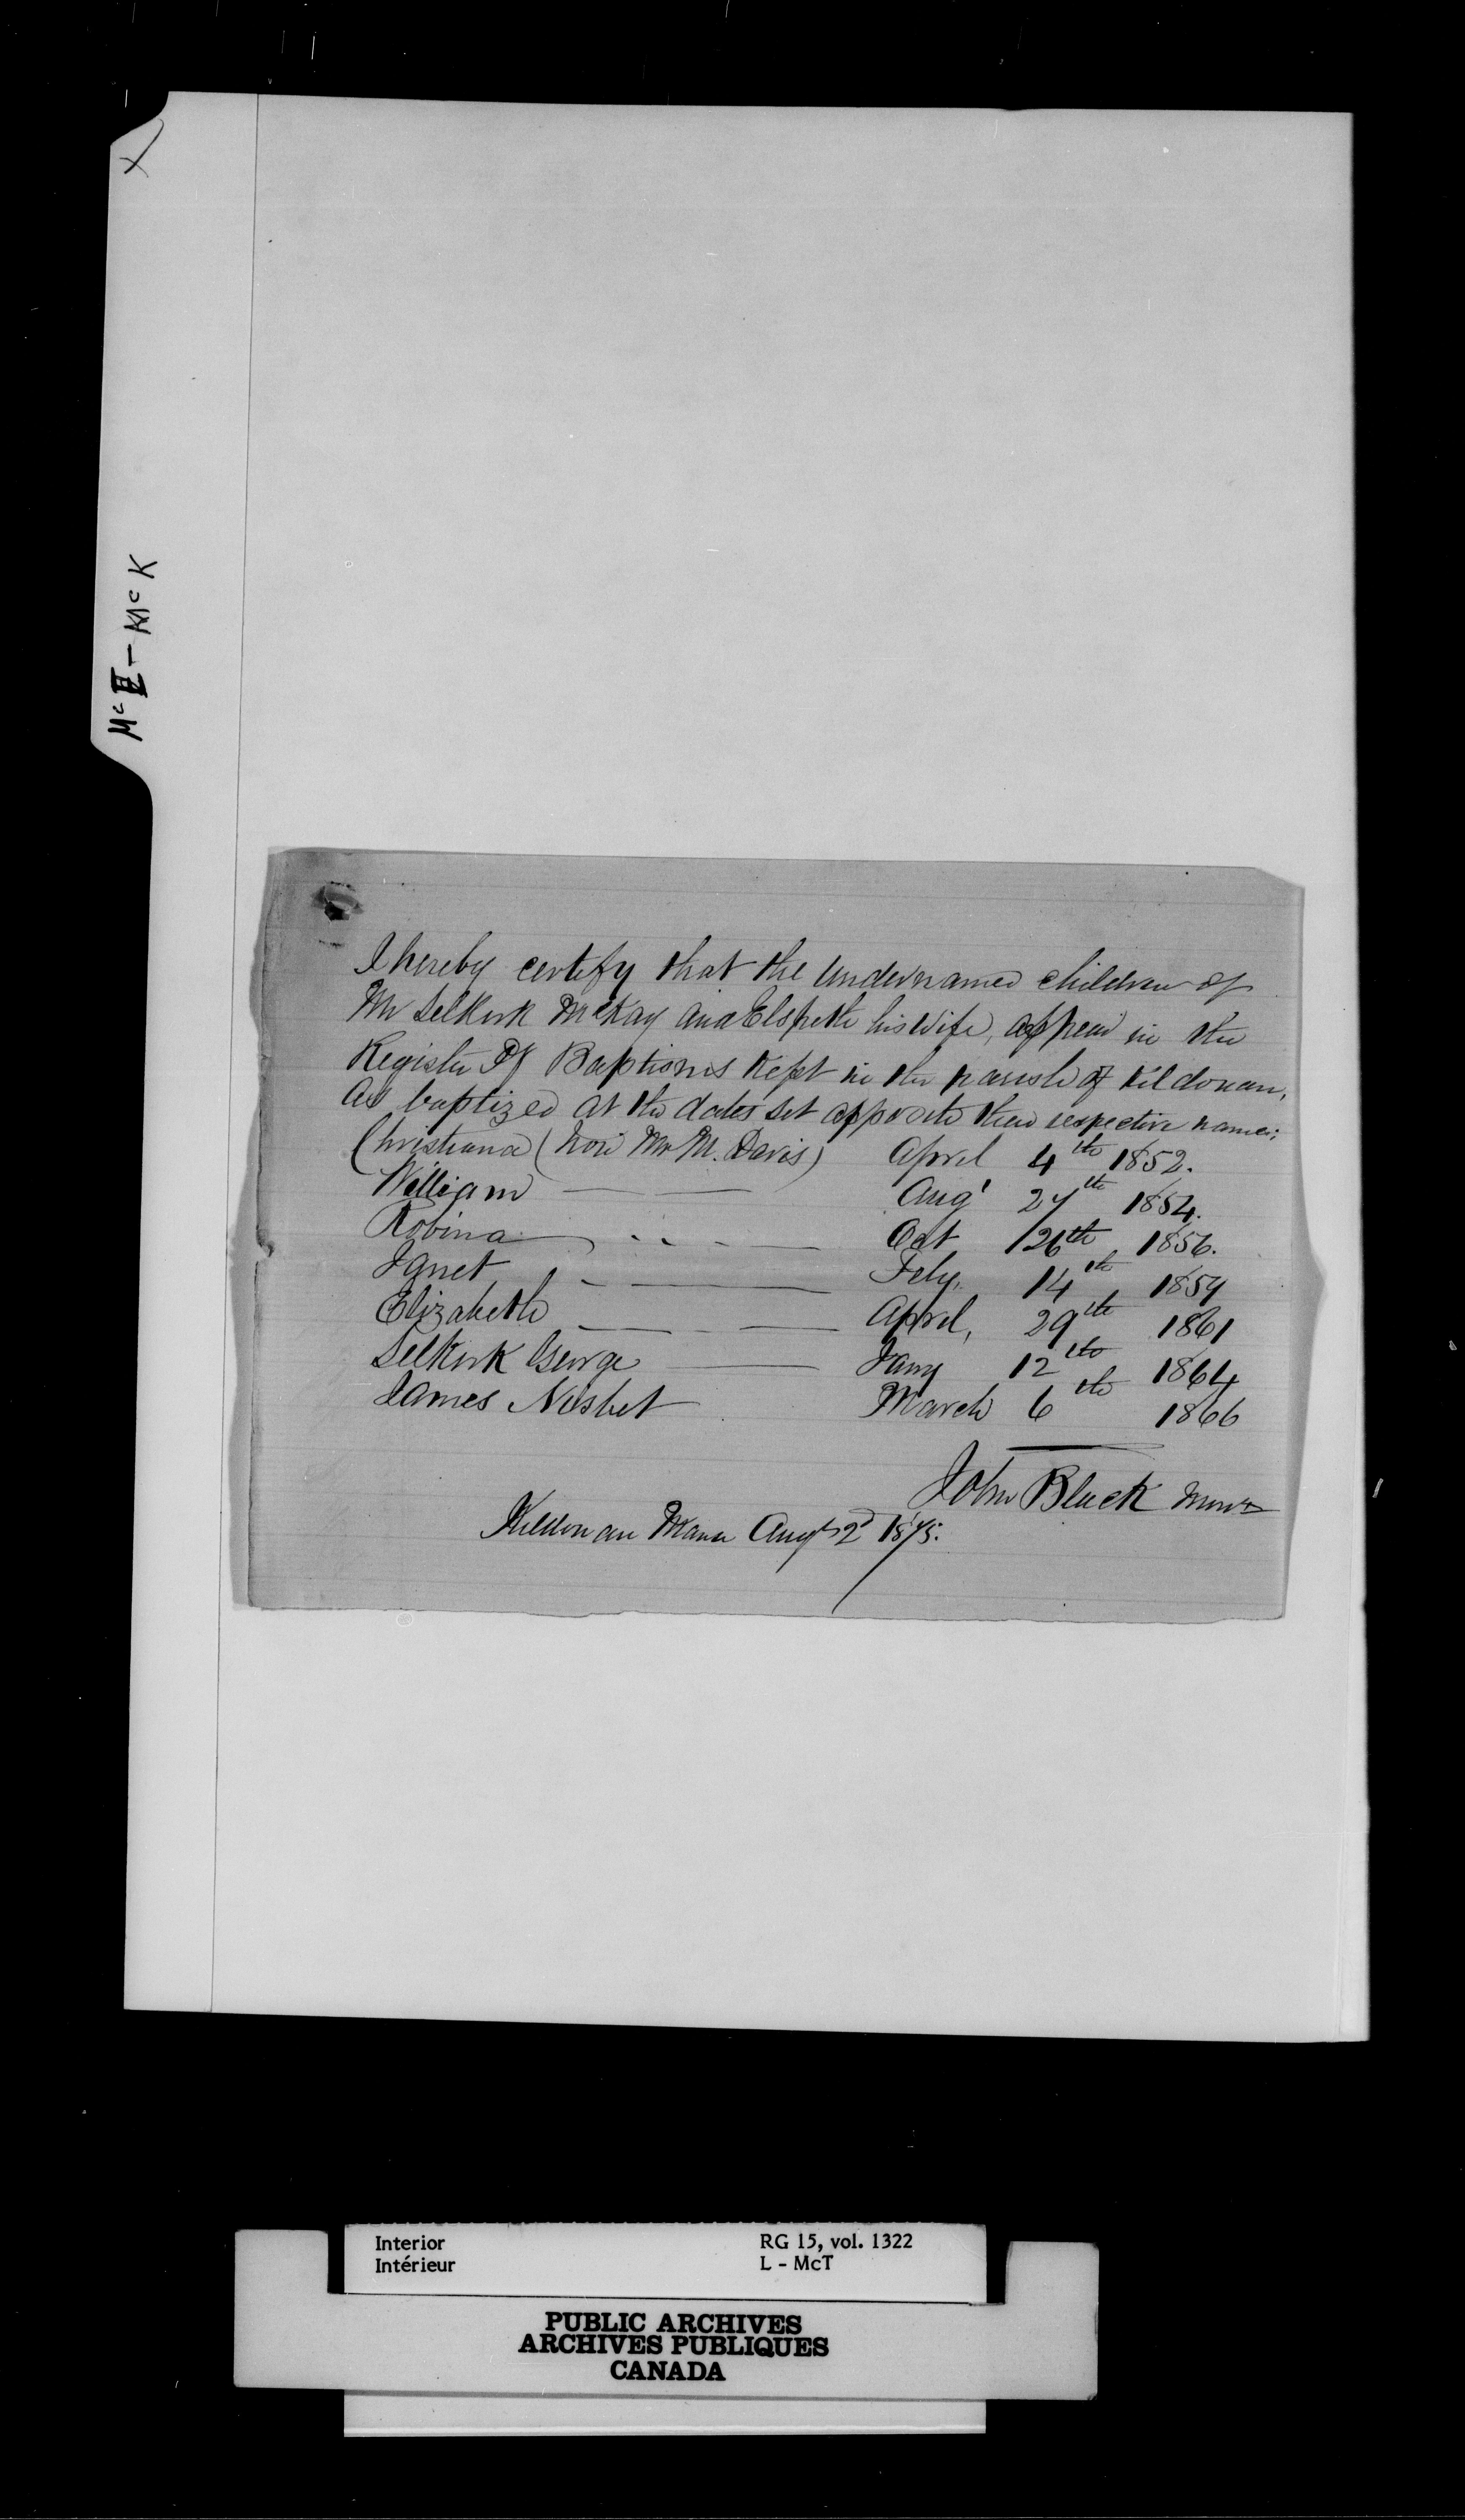 X
McE - McK
I hereby certify that the undernamed children of
Mr Selkirk McKay and Elspeth his wife, appear in the
Register of Baptisms kept in the parish of Kildonan,
as baptized at the dates set opposite their respective names:
Christiana (now Mrs M. Davis) April 4th 1852.
William Augt 27th 1854.
Robina Oct 26th 1856.
Janet Feby. 14th 1859
Elizabeth April, 29th 1861
Selkirk George Jany 12th 1864
James Nisbet March 6th 1866
John Black Minr
Kildonan Manse Augt 2d 1875.
Interior RG 15, vol. 1322
Intérieur L - McT
PUBLIC ARCHIVES
ARCHIVES PUBLIQUES
CANADA